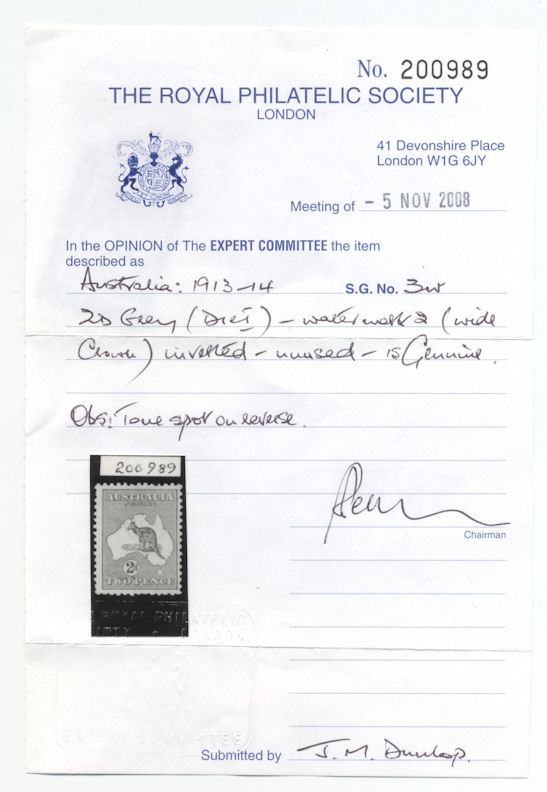 No. 200989
THE ROYAL PHILATELIC SOCIETY
LONDON
41 Devonshire Place
London W1G 6JY
Meeting of - 5 NOV 2008
In the OPINION of The EXPERT COMMITTEE the item
described as
Australia: 1913-14 S.G. No. 3w
2D Grey (Die I) - watermark 2 (wide
Crown) inverted - unused - is Genuine.
Obs: Tone spot on reverse.
200989
AUSTRALIA
POSTAGE
2D
TWO PENCE
ROYAL PHIL
Chairman
Submitted by J. M. Dunlop.